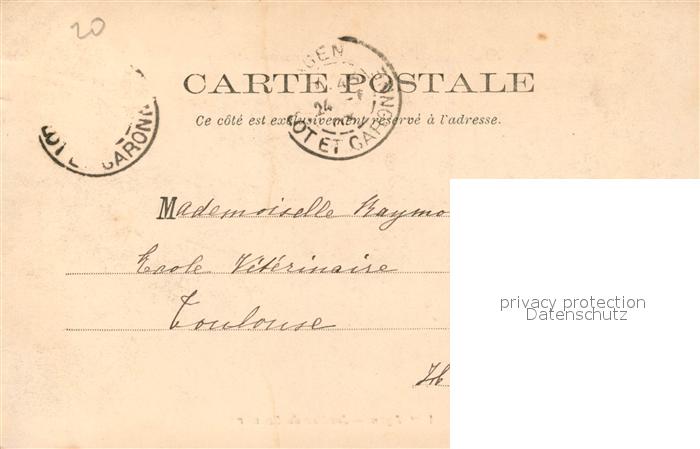 20
CARTE POSTALE
Ce côté est exclusivement réservé à l'adresse.
AGEN
24
LOT ET GARONNE
LOT ET GARONN
Mademoiselle Raymo
Ecole Vétérinaire
Toulouse
privacy protection
Datenschutz